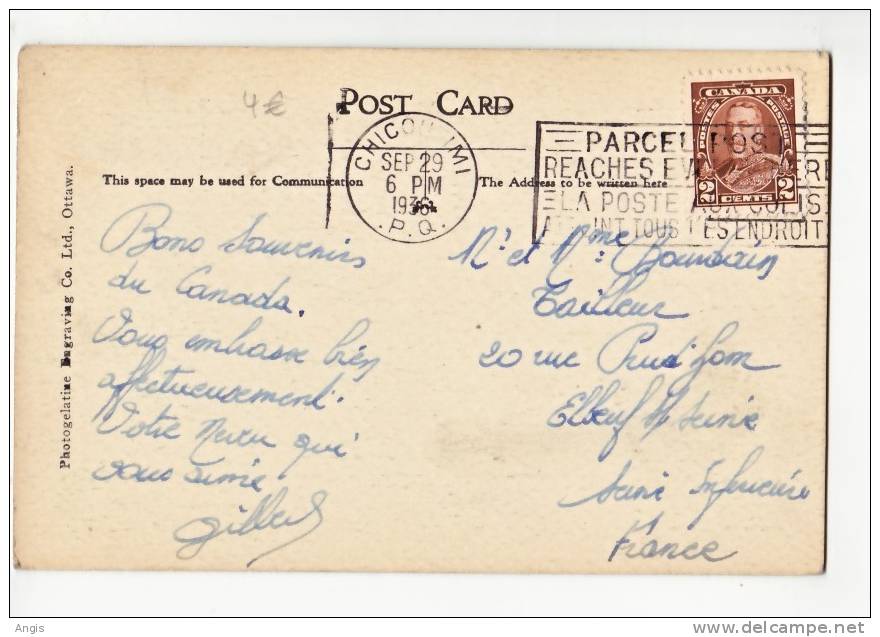 4€
POST CARD
CHICOUTIMI
SEP 29
6 PM
1936
P.Q.
CANADA
POSTES POSTAGE
2 CENTS 2
PARCEL POST
REACHES EVERYWHERE
LA POSTE AUX COLIS
ATTEINT TOUS LES ENDROITS
This space may be used for Communication
The Address to be written here
Photogelatine Engraving Co. Ltd., Ottawa.
Bons Souvenirs
du Canada.
Vous embrasse bien
affectueusement.
Votre Neveu qui
vous aime
Gilbert
Mr et Mme
Tailleur
20 rue
Elbeuf s/ Seine
Seine Inférieure
France
Angis
www.delcampe.net